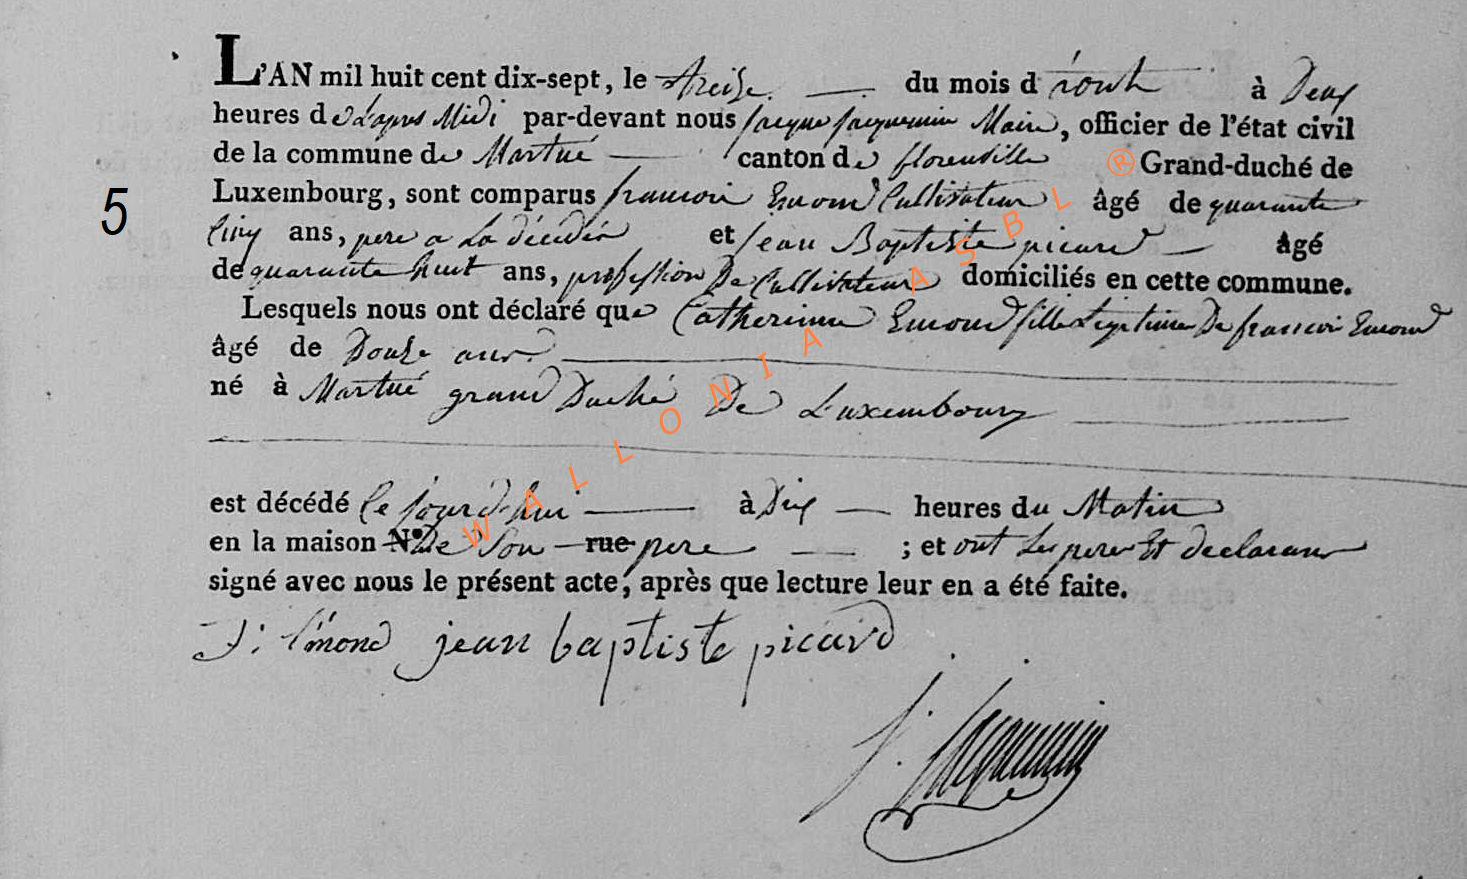 L'AN mil huit cent dix-sept, le treize du mois d'aout à Deux
heures de L'apres Midi par-devant nous jacque jacquemin Maire, officier de l'état civil
de la commune de Martué canton de florenville ® Grand-duché de
5
Luxembourg, sont comparus francois Emond Cultivateur âgé de quarante
Cinq ans, pere a La décédée et jean Baptiste picard âgé
de quarante huit ans, profession De Cultivateur domiciliés en cette commune.
Lesquels nous ont déclaré que Catherinne Emond fille Legitime De francois Emond
âgé de Douze ans
né à Martué grand Duché De Luxembourg
est décédé Ce jourd'hui à Dix heures du Matin
en la maison N.° De Son rue pere ; et ont Les peres Et declarant
signé avec nous le présent acte, après que lecture leur en a été faite.
f: Emond jean baptiste picard
J. Jacquemin
WALLONIA ASBL